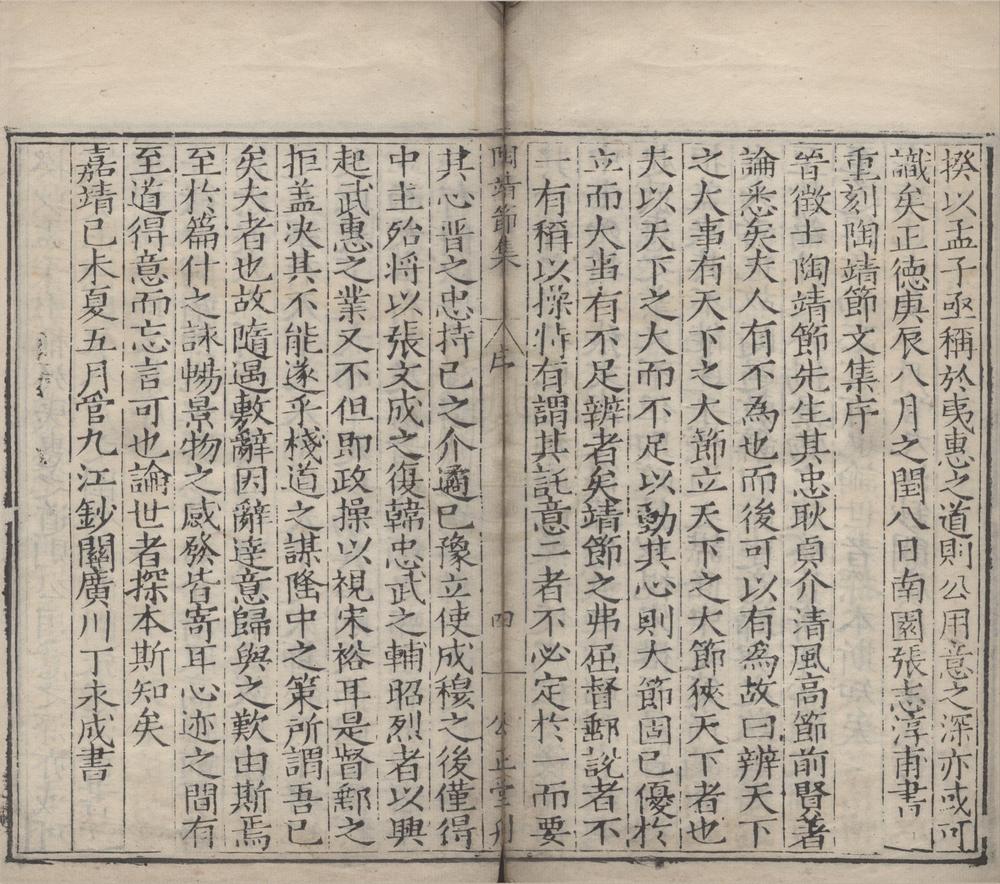 揆以孟子亟稱於夷惠之道則公用意之深亦或可
識矣正德庚辰八月之閏八日南園張志淳甫書
重刻陶靖節文集序
晉徵士陶靖節先生其忠耿貞介清風高節前賢著
論悉矣夫人有不為也而後可以有為故曰辨天下
之大事有天下之大節立天下之大節狹天下者也
夫以天下之大而不足以動其心則大節固已優於
立而大事有不足辨者矣靖節之弗屈督郵說者不
一有稱以操恃有謂其託意二者不必定於一而要
陶靖節集 序 四 公正堂刋
其心晋之忠持己之介邁已豫立使成穆之後僅得
中主殆将以張文成之復韓忠武之輔昭烈者以興
起武惠之業又不但即政操以視宋裕耳是督郵之
拒盖决其不能遂乎棧道之謀隆中之策所謂吾已
矣夫者也故隨遇敷辭因辭逹意歸與之歎由斯焉
至於篇什之詠暢景物之感發皆寄耳心迹之間有
至道得意而忘言可也論世者探本斯知矣
嘉靖己未夏五月管九江鈔關廣川丁永成書